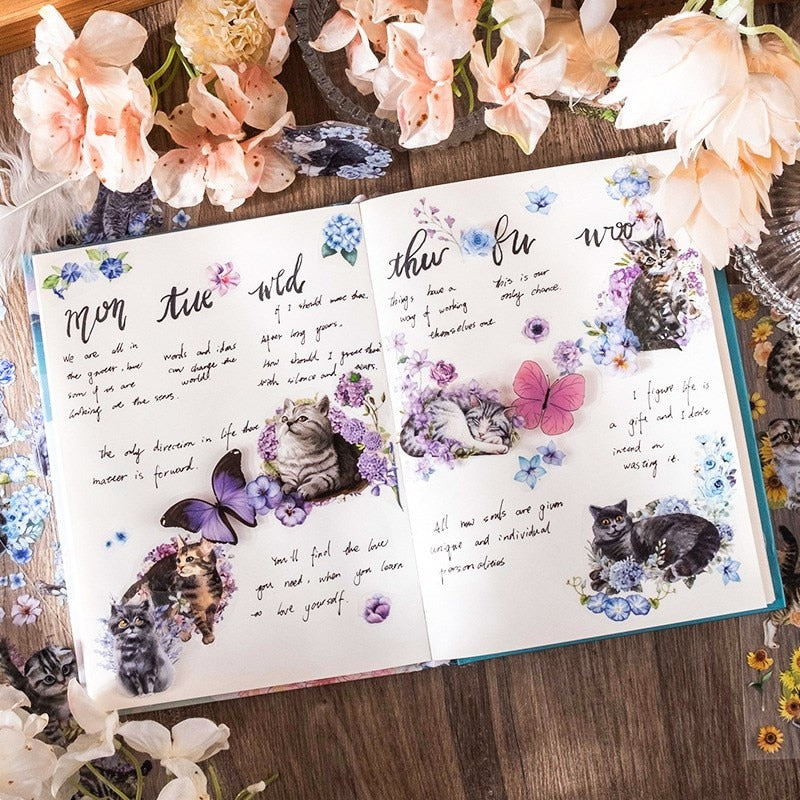 mon tue wed
We are all in
the gutter, but
som of us are
looking at the stars.
words and ideas
can change the
world!
if I should meet thee.
After long years.
How should I greet thee
with silence and tears.
The only direction in life that
matter is forward.
You'll find the love
you need, when you learn
to love yourself.
thur
Things have a
way of working
themselves one.
this is our
only chance.
I figure life is
a gift and I don't
intend on
wasting it.
All new souls are given
unique and individual
personalities